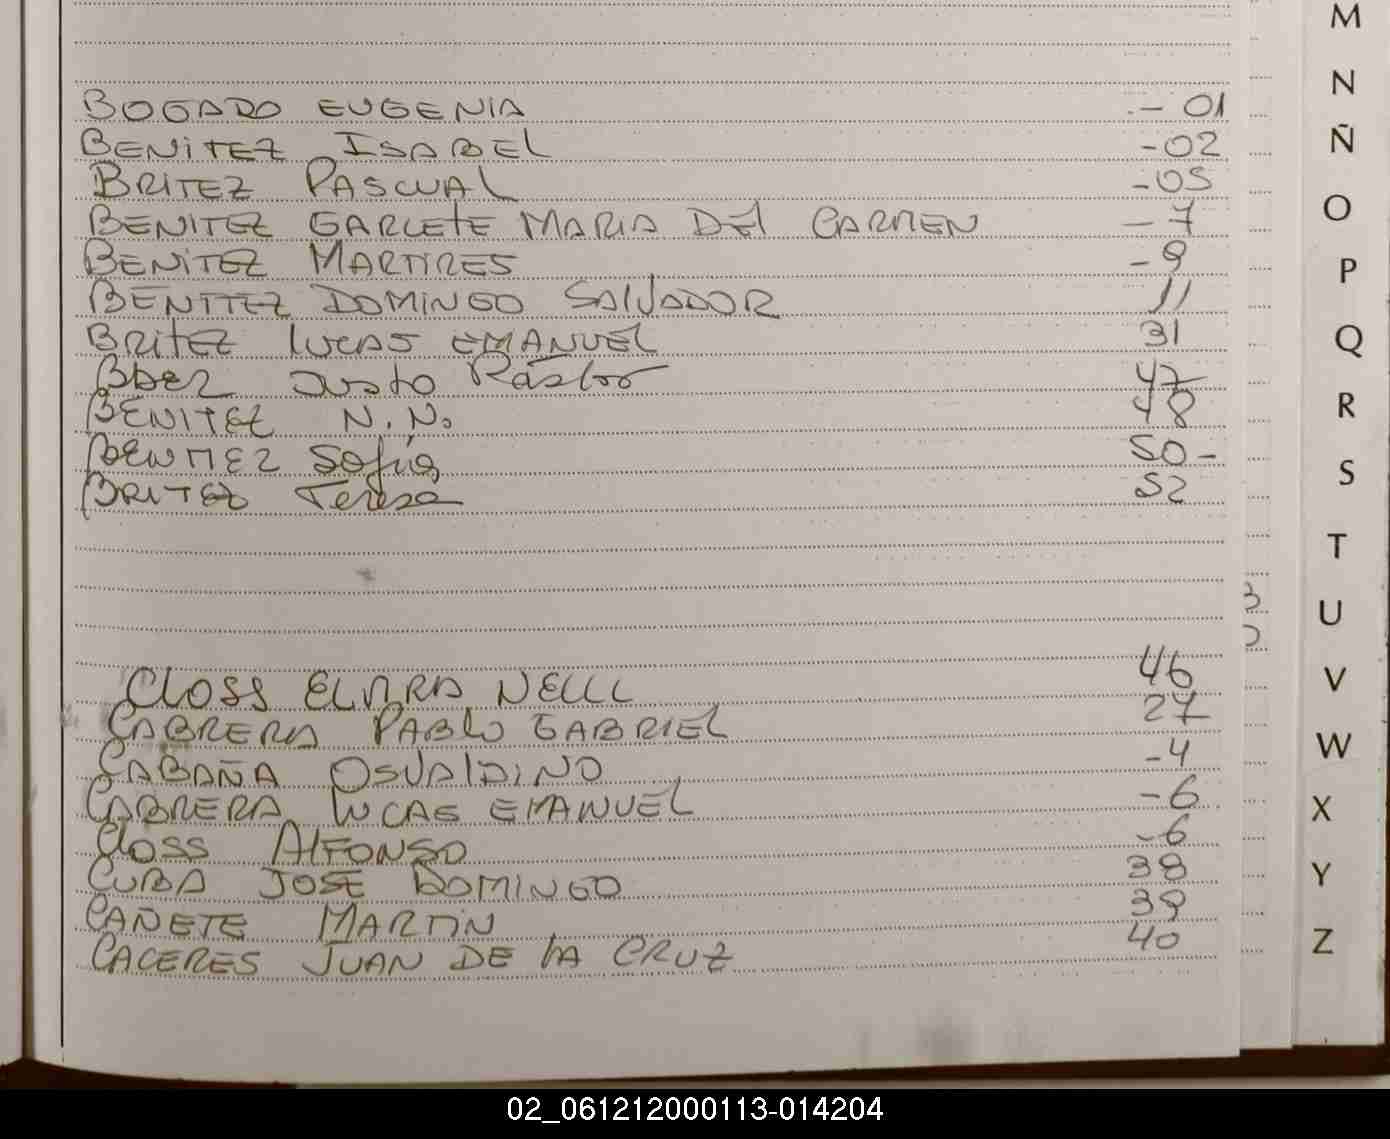 BOGADO EUGENIA - 01
BENITEZ ISABEL -02
BRITEZ PASCUAL -05
BENITEZ GARLETE MARIA DEL CARMEN -7
BENITEZ MARTIRES -9
BENITEZ DOMINGO SALVADOR 11
BRITEZ LUCAS EMANUEL 31
BAEZ Justo Pastor 47
BENITEZ N.N. 48
BENITEZ Sofia 50-
BRITEZ Teresa 52
CLOSS ELMIRA NELLI 46
CABRERA PABLO GABRIEL 27
CABAÑA OSVALDINO -4
CABRERA LUCAS EMANUEL -6
CLOSS ALFONSO -6
CUBA JOSE DOMINGO 38
CAÑETE MARTIN 39
CACERES JUAN DE LA CRUZ 40
M
N
Ñ
O
P
Q
R
S
T
U
V
W
X
Y
Z
02_061212000113-014204